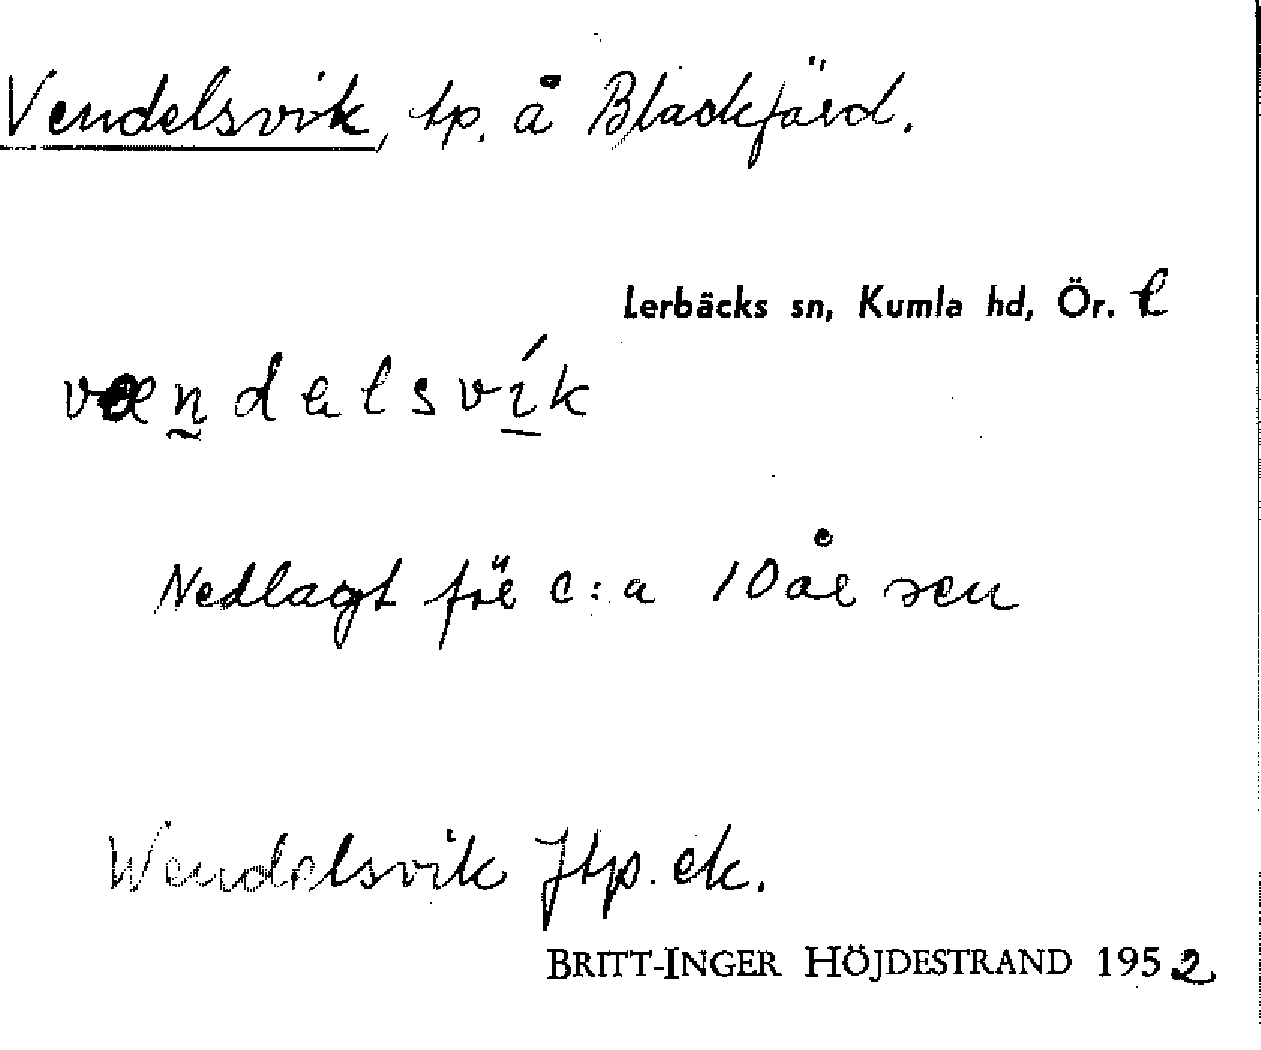 Vendelsvik, tp. å Blackfjärd.
Lerbäcks sn, Kumla hd, Ör. l
vændalsvík
Nedlagt för c:a 10 år sen
Wendelsvik Jtp. ek.
BRITT-INGER HÖJDESTRAND 1952